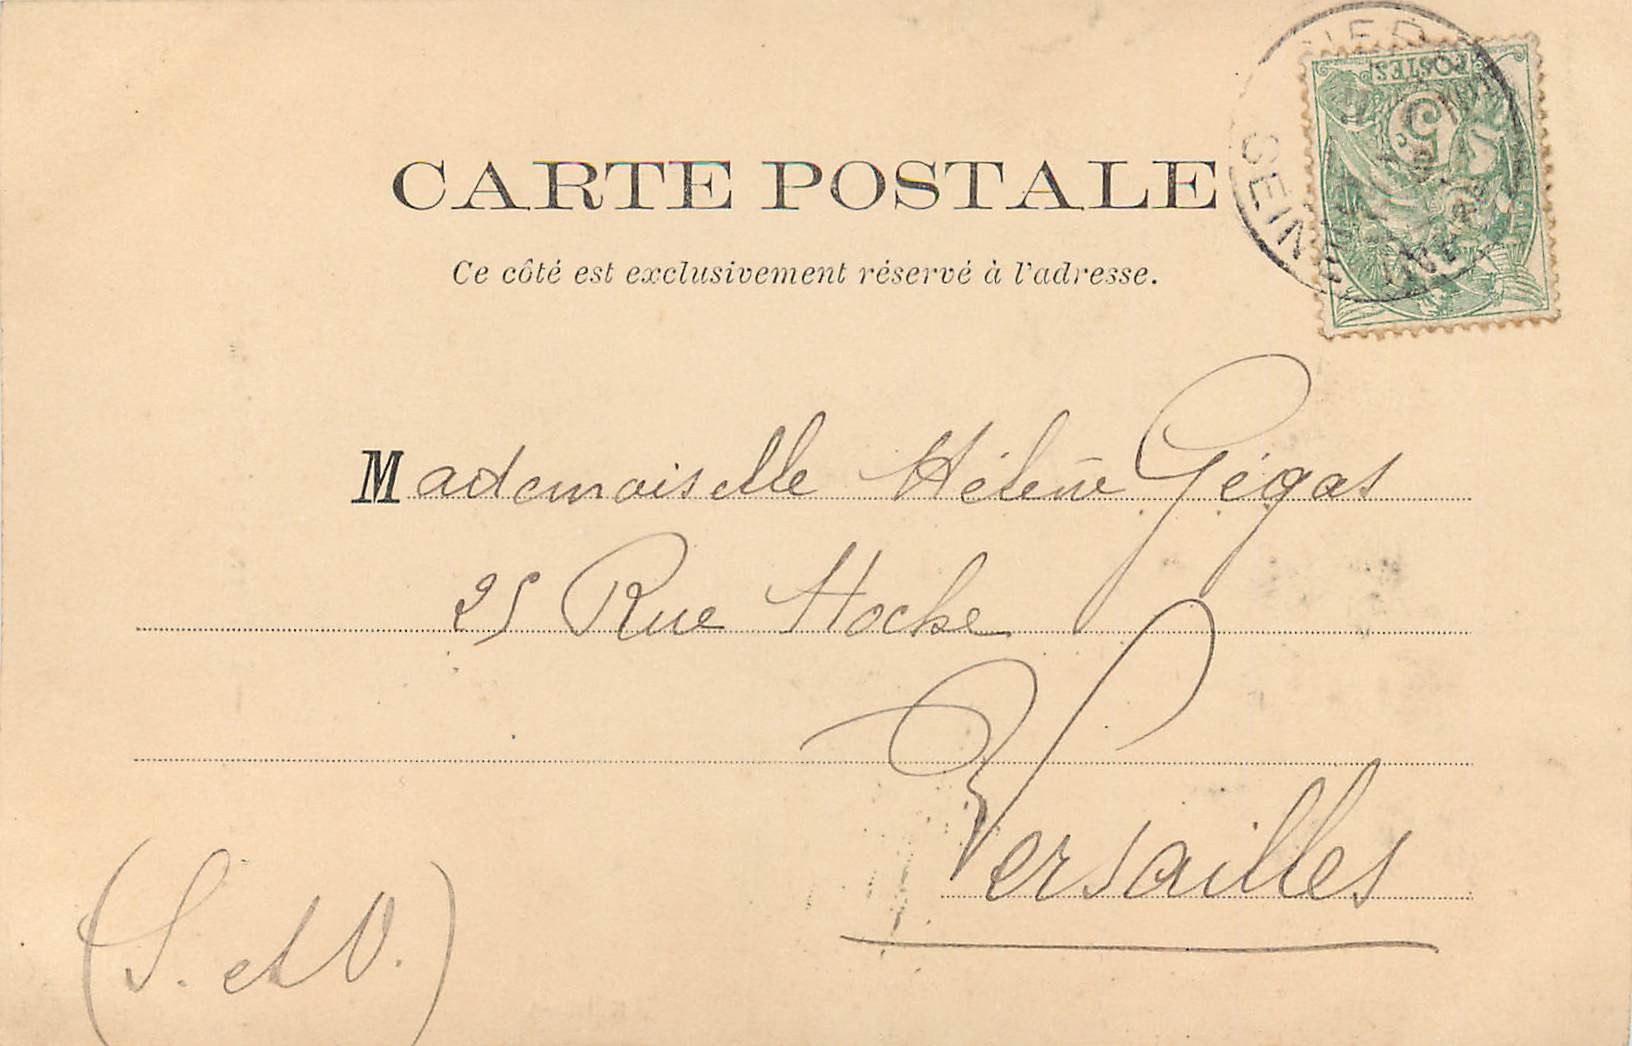 CARTE POSTALE
Ce côté est exclusivement réservé à l'adresse.
POSTES
5
SEINE
Mademoiselle Hélène Gégas
25 Rue Hoche
Versailles
(S. et O.)